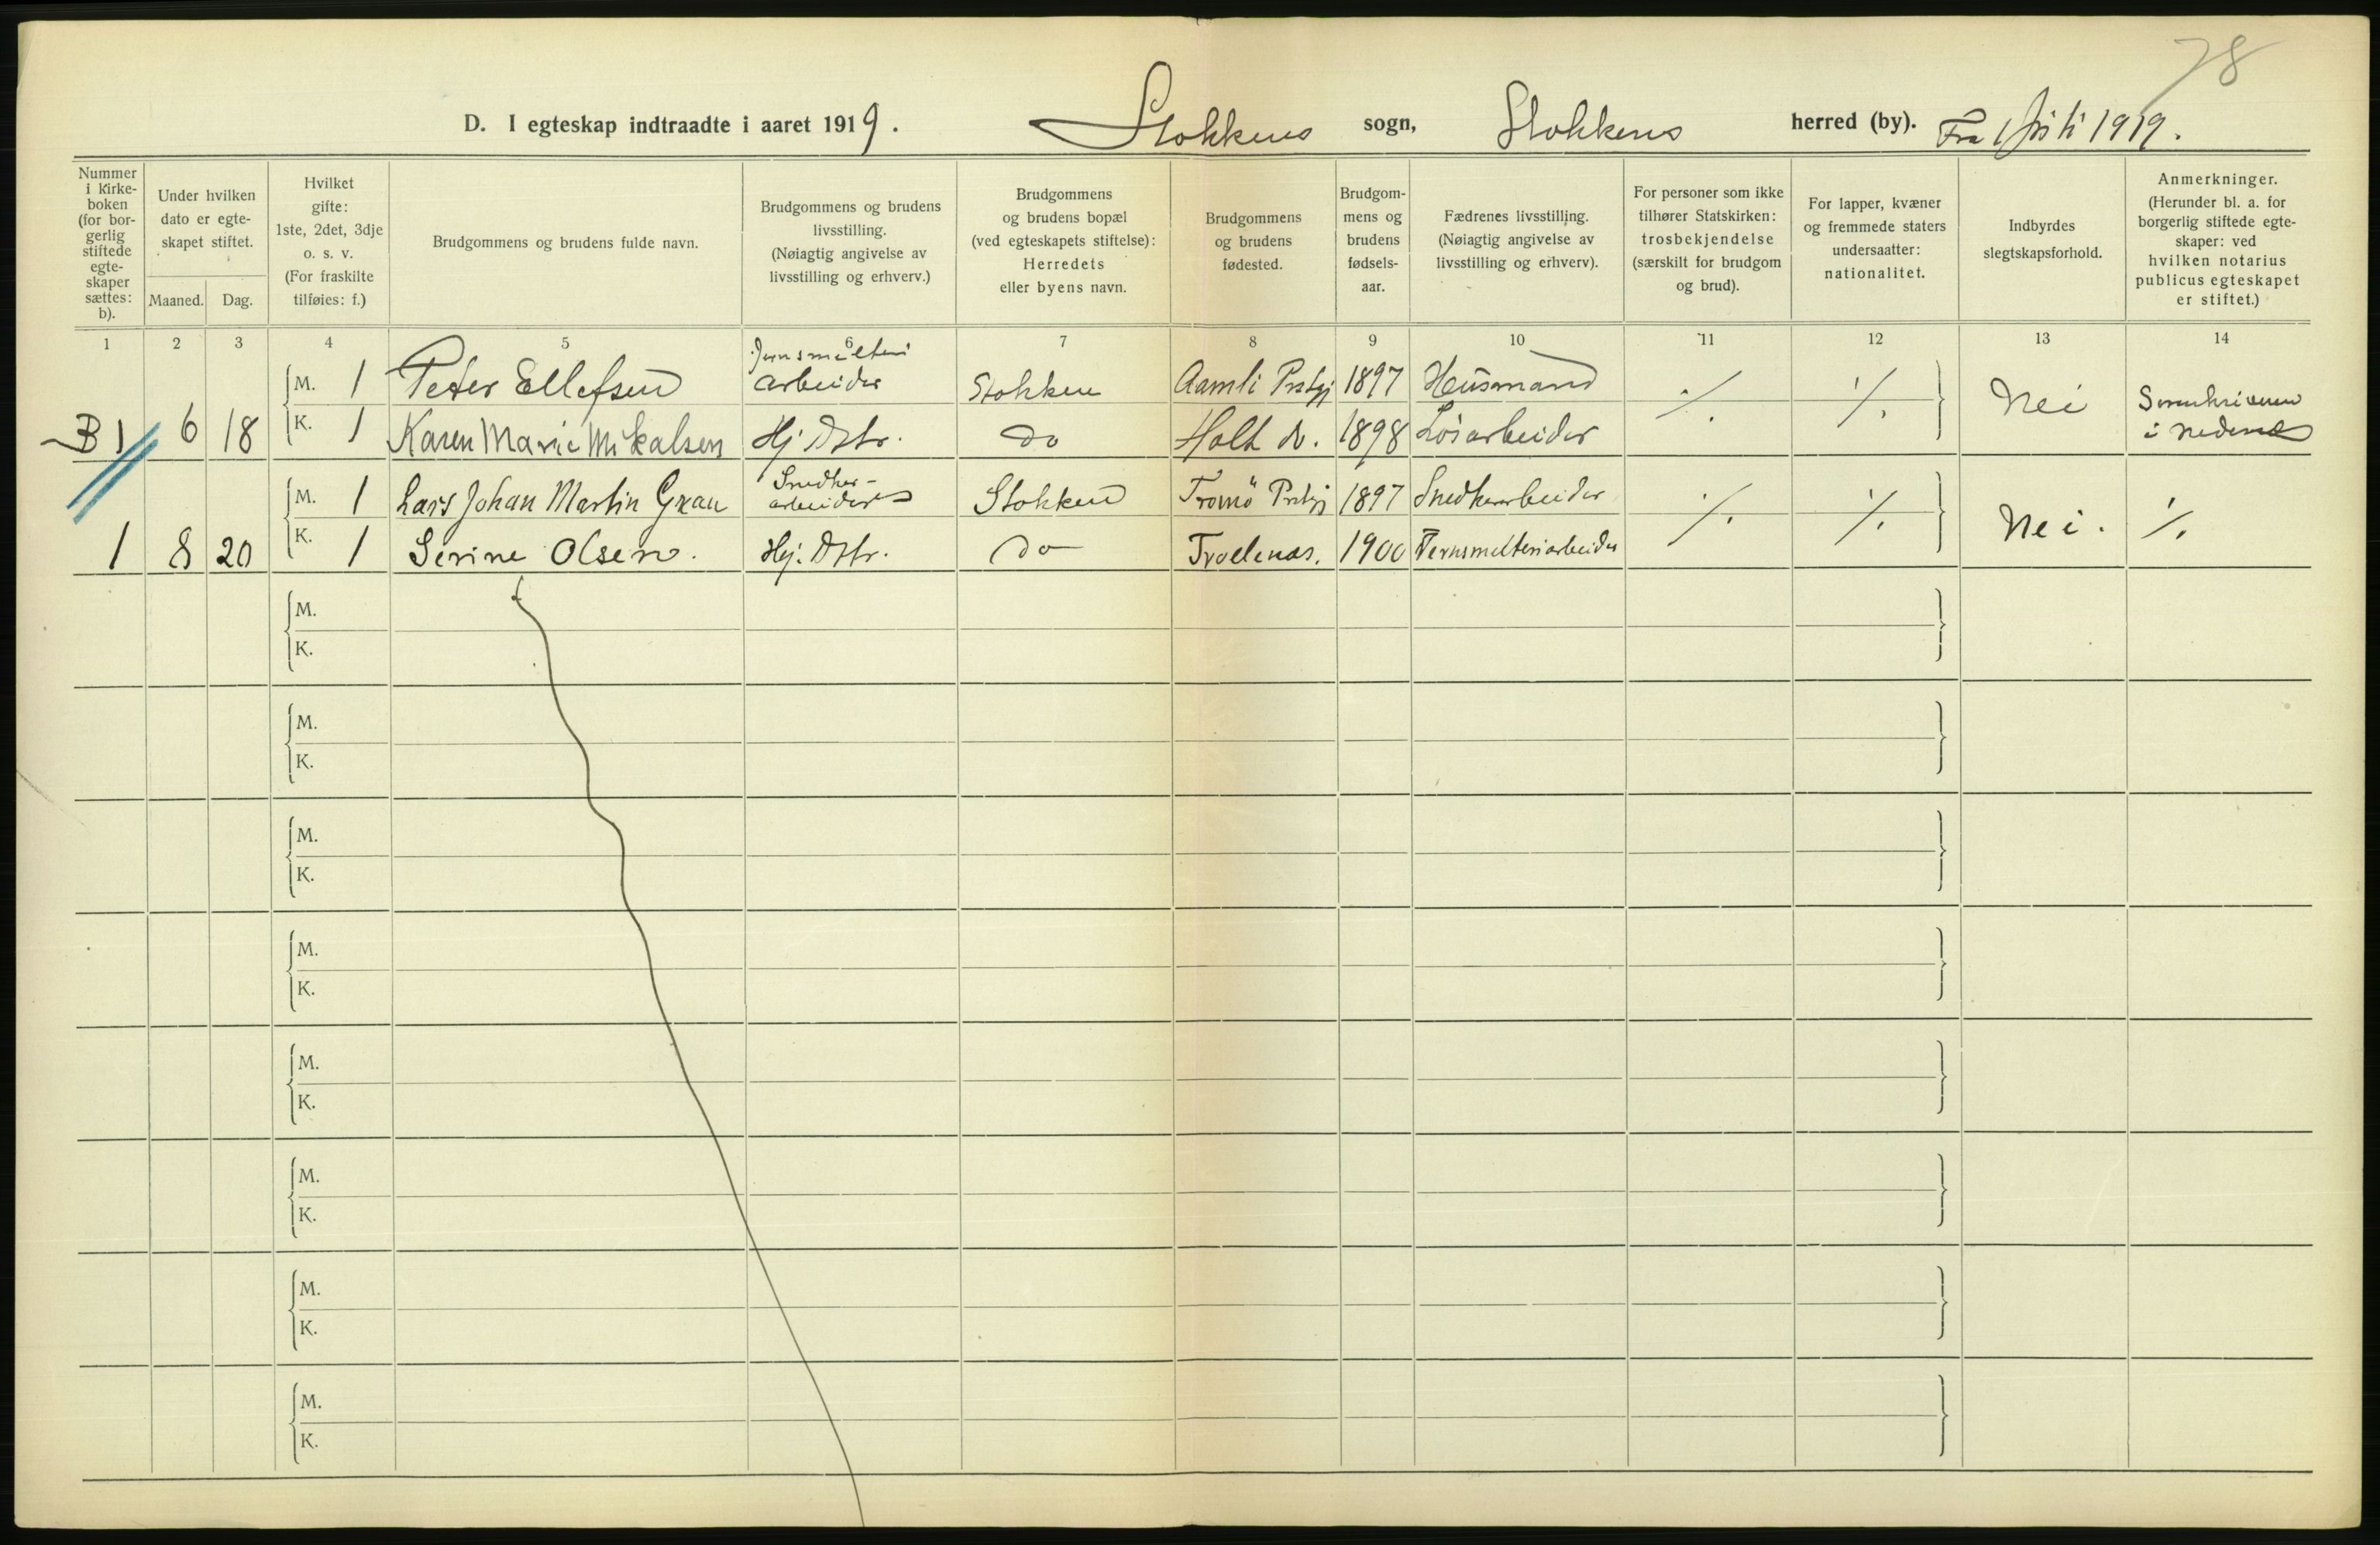 78
D. I egteskap indtraadte i aaret 1919. Stokkens sogn, Stokkens herred (by). Fra 1 juli 1919.
Nummer i Kirkeboken (for borgerlig stiftede egteskaper sættes: b).
Under hvilken dato er egteskapet stiftet.
Maaned. Dag.
Hvilket gifte: 1ste, 2det, 3dje o. s. v. (For fraskilte tilføies: f.)
Brudgommens og brudens fulde navn.
Brudgommens og brudens livsstilling. (Nøiagtig angivelse av livsstilling og erhverv.)
Brudgommens og brudens bopæl (ved egteskapets stiftelse): Herredets eller byens navn.
Brudgommens og brudens fødested.
Brudgommens og brudens fødselsaar.
Fædrenes livsstilling. (Nøiagtig angivelse av livsstilling og erhverv).
For personer som ikke tilhører Statskirken: trosbekjendelse (særskilt for brudgom og brud).
For lapper, kvæner og fremmede staters undersaatter: nationalitet.
Indbyrdes slegtskapsforhold.
Anmerkninger. (Herunder bl. a. for borgerlig stiftede egteskaper: ved hvilken notarius publicus egteskapet er stiftet.)
1 2 3 4 5 6 7 8 9 10 11 12 13 14
M. 1 Peter Ellefsen Jernsmelteri arbeider Stokken Aamli Prstgj 1897 Husmand ./. ./. Nei Sorenskriveren
B 1 6 18 K. 1 Karen Marie Mikalsen Hj Dtr. do Holt 1898 Løsarbeider i Nedenes
M. 1 Lars Johan Martin Grau Snedker-arbeider Stokken Tromø Prstgj 1897 Snedkerarbeider ./. ./. Nei. ./.
1 8 20 K. 1 Serine Olsen. Hj. Dtr. do Froelenæs. 1900 Jernsmelteriarbeider
M.
K.
M.
K.
M.
K.
M.
K.
M.
K.
M.
K.
M.
K.
M.
K.